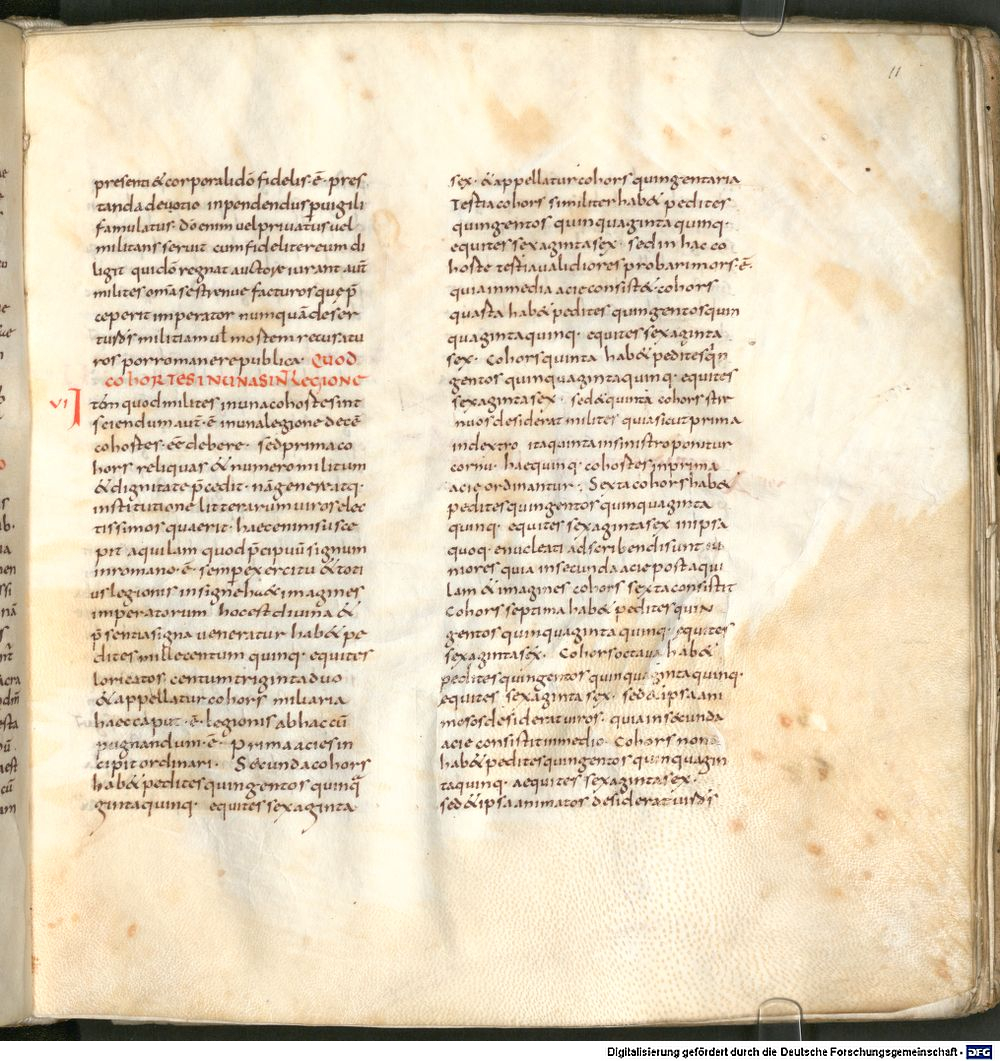 11
presenti & corporali dō fidelis· ē· pres
tanda deuotio inpendendus puigili
famulatus· dō enim uel priuatus uel
militans seruit cum fideliter eum di
ligit qui dō regnat auctore iurant aut̄
milites om̄a se strenue facturos que p̄
ceperit imperator numquā deser
turos militiam ul mostem recusatu
ros pro romane republica· QUOD
COHORTES IN UNA SINT LEGIONE
VI
tōn quod milites in una cohostes int
sciendum aut̄· ē in una legione decē
cohostes· eē debere· sed prima co
hors reliquas & numero militum
& dignitate p̄cedit· nā genere atq·
institutione litterarum uiros elec
tissimos quaerit· haec enim susce
pit aquilam quod p̄cipuū signum
in romano· ē· semper exercitu & toti
us legionis insigne hab& imagines
imperatorum hoc est diuina &
p̄sentia signa ueneratur hab& pe
dites mille centum quinq· equites
loricatos centum triginta duo
& appellatur cohors miliaria
haec caput· ē· legionis ab hac cū
pugnandum· ē· prima acies in
cipit ordinari· Secunda cohors
hab& pedites quingentos quinq̄
ginta quinq· equites sexaginta
sex· & appellatur cohors quingentaria
Testia cohors similiter hab& pedites
quingentos quinquaginta quinq·
equites sexaginta sex· sed in hac co
hoste testia ualidiores probari mors· ē·
quia in media acie consist& cohors
quasta hab& pedites quingentos quin
quaginta quinq· equites sexaginta
sex· Cohors quinta hab& pedites qn̄
gentos quinquaginta quinq· equites
sexaginta sex· sed & quinta cohors stre
nuos desiderat milites quia sicut prima
in dextro ita quinta in sinistro ponitur
cornu· hae quinq· cohostes in prima
acie ordinantur· Sexta cohors hab&
pedites quingentos quinquaginta
quinq· equites sexaginta sex in ipsa
quoq· enucleati adscribendi sunt iu
niores quia in secunda acie post aqui
lam & imagines cohors sexta consistit
Cohors septima hab& pedites quin
gentos quinquaginta quinq· equites
sexaginta sex· Cohors octaua hab&
pedites quingentos quinquaginta quinq·
equites sexaginta sex· sed & ipsa ani
mosos desiderat uiros· quia in secunda
acie consistit in medio· Cohors nona
hab& pedites quingentos quinquagin
ta quinq· aequites sexaginta sex·
sed & ipsa animatos desiderat uiros
Digitalisierung gefördert durch die Deutsche Forschungsgemeinschaft - DFG